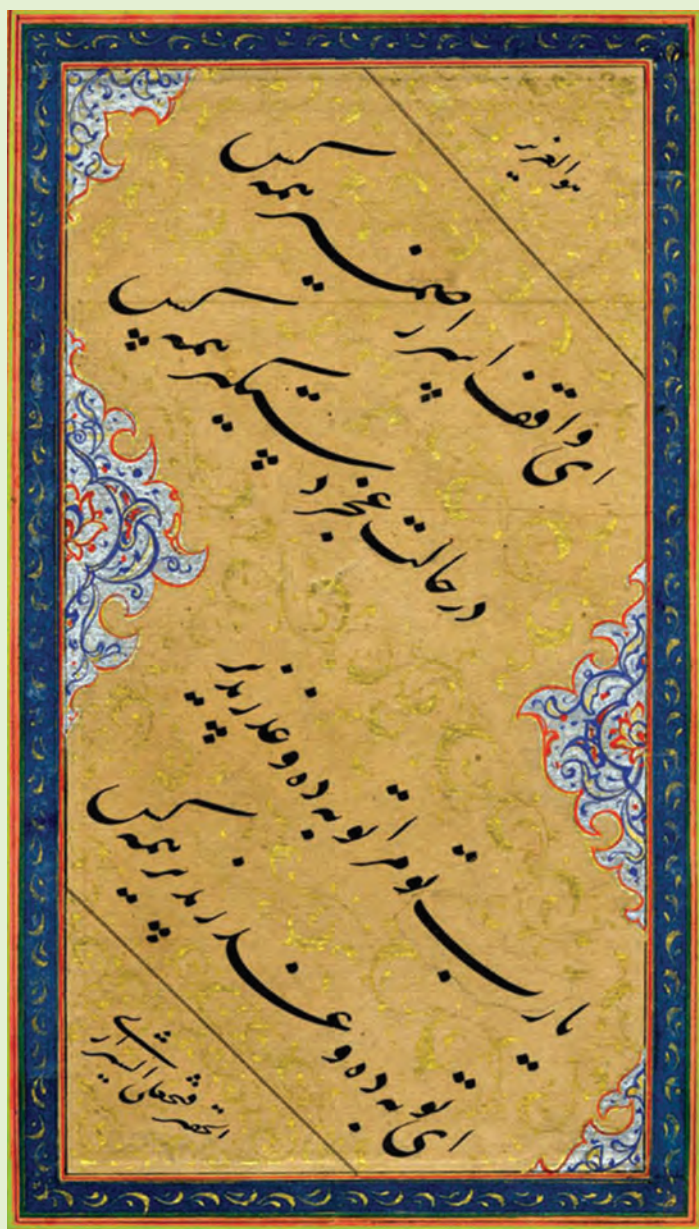 هو العزیز
ای واقف اسرار ضمیر همه کس
در حالت عجز دستگیر همه کس
یا رب تو مرا توبه ده و عذر پذیر
ای توبه ده و عذر پذیر همه کس
فتحعلی الشیرازی